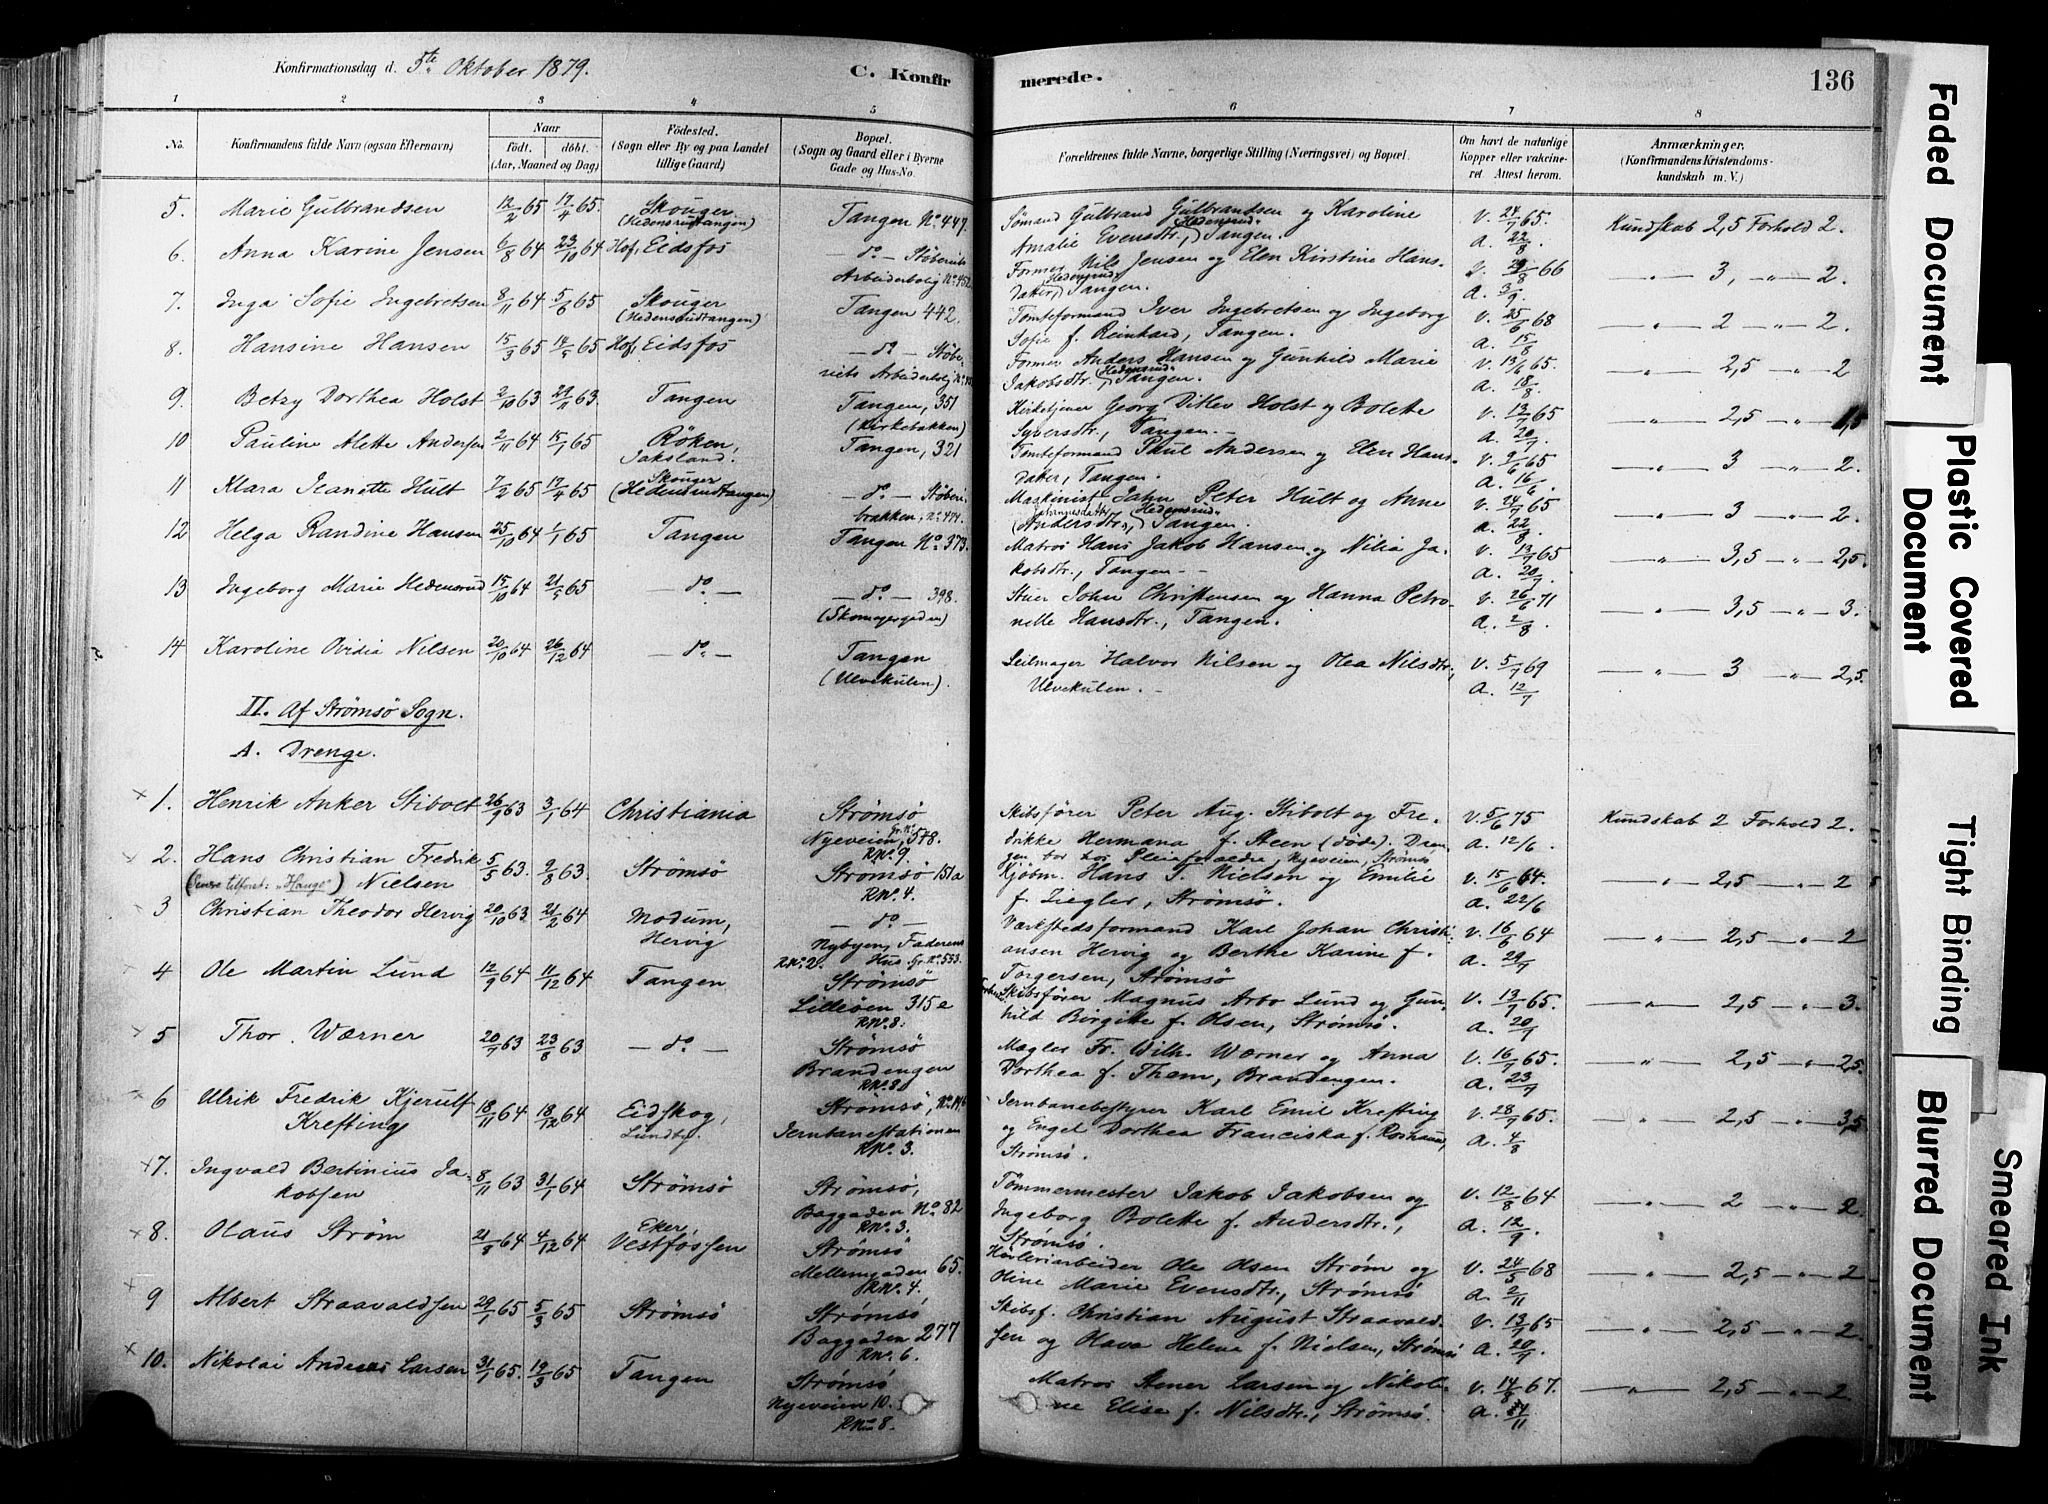 Konfirmationsdag d. 5te Oktober 1879.
C. Konfirmerede.
136
1 2 3 4 5 6 7 8
No.
Konfirmandens fulde Navn (ogsaa Efternavn)
Naar
Födt. döbt.
(Aar, Maaned og Dag)
Födested.
(Sogn eller By og paa Landet
tillige Gaard)
Bopæl.
(Sogn og Gaard eller i Byerne
Gade og Hus-No.
Forældrenes fulde Navne, borgerlige Stilling (Næringsvei) og Bopæl.
Om havt de naturlige
Kopper eller vakcine-
ret. Attest herom.
Anmærkninger.
(Konfirmandens Kristendoms-
kundskab m. V.)
5. Marie Gulbrandsen 12/2 65 17/4 65. Skouger (Hedensrudtangen) Tangen No. 447. Sömand Gulbrand Gulbrandsen og Karoline Amalie Evensdtr., Hedensrud- Tangen. V. 24/7 65. a. 22/8 Kundskab 2,5 Forhold 2.
6. Anna Karine Jensen 6/8 64 23/10 64 Hof, Eidsfos — do — Stöberiets Arbeiderbolig No. 452. Former Nils Jensen og Elen Kirstine Hansdatter, Hedensrud- Tangen. V. 29/8 66 a. 3/9. — " — 3, — " — 2.
7. Inga Sofie Ingebretsen 8/11 64 5/6 65 Skouger (Hedensrudtangen) Tangen 442. Tomteformand Iver Ingebretsen og Ingeborg Sofie f. Reinhard, Tangen. V. 25/6 68 a. 15/8 — " — 2 — " — 2.
8. Hansine Hansen 15/3 65 14/5 65 Hof, Eidsfos — do — Stöberiets Arbeiderbolig Former Anders Hansen og Gunhild Marie Jakobsdtr., Hedensrud- Tangen. V. 13/6 65. a. 18/8 — " — 2,5 — " — 2
9. Betzy Dorthea Holst 2/10 63 29/11 63. Tangen Tangen, 351 (Kirkebakken) Kirketjener Georg Ditlev Holst og Bolette Syversdtr., Tangen. — V. 13/7 65 a. 20/7 — " — 2,5 — " — 1,5
10 Pauline Alette Andersen 2/11 64 15/1 65 Röken, Jaksland. Tangen, 321 Tomteformand Paul Andersen og Elen Hansdatter, Tangen. V. 9/6 65 a. 16/6. — " — 3 — " — 2.
11 Klara Jeanette Hult 7/2 65 17/4 65 Skouger (Hedensrudtangen) — do — Stöberibakken, No. 474. Maskinist John Peter Hult og Anne Johannesdatter (Andersdtr.,) Hedensrud- Tangen. V. 24/7 65 a. 22/8 — " — 3 — " — 2.
12 Helga Randine Hansen 25/10 64 1/1 65 Tangen Tangen No. 373. Matros Hans Jakob Hansen og Nilia Jakobsdtr., Tangen — — V. 13/7 65 a. 20/7. — " — 3,5 — " — 2,5.
13 Ingeborg Marie Hedensrud 15/10 64 21/5 65 — do — — do — 398. (Skomagergaden) Stuer John Christensen og Hanna Petronelle Hansdtr., Tangen. V. 26/6 71 a. 2/8. — " — 3,5 — " — 3.
14 Karoline Ovidia Nilsen 20/10 64 26/12 64 — do — Tangen (Ulvekulen). Seilmager Halvor Nilsen og Olea Nilsdtr., Ulvekulen. — V. 5/7 69 a. 12/7 — " — 3 — " — 2,5.
II. Af Strömsö Sogn.
A. Drenge.
× 1. Henrik Anker Stibolt 26/9 63 3/1 64 Christiania Strömsö Nyeveien, Gr. No. 578. RNo. 9. Skibsförer Peter Aug. Stibolt og Fredrikke Hermana f. Steen (döde). Drengen bor hos Pleieforældre, Nyeveien, Strömsö V. 5/6 75 a. 12/6. Kundskab 2 Forhold 2.
× 2. Hans Christian Fredrik Nielsen (Senere tilföiet: "Hauge") 5/5 63. 9/8 63. Strömsö Strömsö 151a RNo. 4. Kjöbm. Hans S. Nielsen og Emilie f. Ziegler, Strömsö. V. 15/6 64. a. 22/6 — " — 2,5 — " — 2
3 Christian Theodor Hervig 20/10 63. 21/2 64 Modum, Hervig — do — Nybyen, Faderens Hus Gr. No. 553. RNo. 2. Værkstedsformand Karl Johan Christiansen Hervig og Berthe Karine f. Torgersen, Strömsö V. 16/6 64 a. 29/7 — " — 2,5 — " — 2
4 Ole Martin Lund 12/9 64 11/12 64 Tangen Strömsö Lilleöen 315 e RNo. 8. Skibsförer Magnus Arbo Lund og Gunhild Birgitte f. Olsen, Strömsö. V. 13/7 65. a. 20/7 — " — 2,5 — " — 3.
5 Thor Wærner 20/7 63 23/8 63 — do — Strömsö Brandengen RNo. 8. Mægler Fr. Wilh. Wærner og Anna Dorthea f. Tham, Brandengen. V. 16/7 65. a. 23/7 — " — 2,5 — " — 2,5.
6 Ulrik Fredrik Kjerulf Krefting 18/11 64 18/12 64 Eidskog, Lundby. Strömsö, Jernbanestationen RNo. 3. Jernbanebestyrer Karl Emil Krefting og Engel Dorthea Franciska f. Roshauw, Strömsö. V. 28/7 65. a. 4/8 — " — 2,5 — " — 3,5
× 7. Ingvald Bertinius Jakobsen 8/11 63 31/1 64 Strömsö Strömsö, Baggaden No. 82 RNo. 3. Tömmermester Jakob Jakobsen og Ingeborg Bolette f. Andersdtr., Strömsö. V. 12/8 64 a. 12/9. — " — 2 — " — 2.
× 8. Olaus Ström 21/8 64 4/12 64 Eker, Vestfossen Strömsö Mellemgaden 65. RNo. 4. Hövleriarbeider Ole Olsen Ström og Oline Marie Evensdtr., Strömsö V. 24/5 68 a. 2/11 — " — 2,5 — " — 2
× 9 Albert Straavaldsen 29/1 65 5/3 65 Strömsö Strömsö Baggaden 277 RNo. 6. Skibsf. Christian August Straavaldsen og Olava Helene f. Nielsen, Strömsö V. 13/7 65 a. 20/7. — " — 2,5 — " — 2
× 10. Nikolai Andreas Larsen 31/1 65. 19/3 65 Tangen Strömsö Nyeveien 10. RNo. 8. Matros Stener Larsen og Nikoline Elise f. Nilsdtr., Strömsö. V. 14/8 67. a. 21/11 — " — 2,5 — " — 2
Faded Document
Plastic Covered Document
Tight Binding
Blurred Document
Smeared Ink